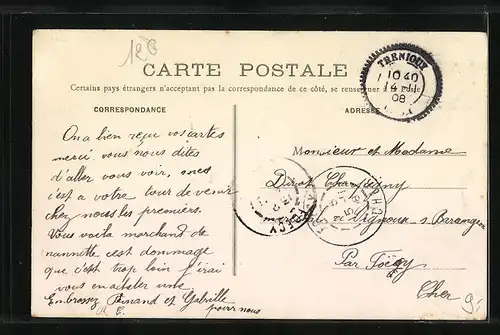 128
CARTE POSTALE
Certains pays étrangers n'acceptant pas la correspondance de ce côté, se renseigner à la poste
CORRESPONDANCE
ADRESSE
10 40
08
On a bien reçu vos cartes
merci vous nous dites
d'aller vous voir, mes
c'est a votre tour de venir
chez nous les premiers.
Vous voila marchand de
nannette c'est dommage
que c'est trop loin j'irai
vous en acheter une
Embrassez Fernand et Gabrille
pour nous
M. C.
Monsieur et Madame
Vignoux s. Barangeon
Par Foëcy
Cher
9.